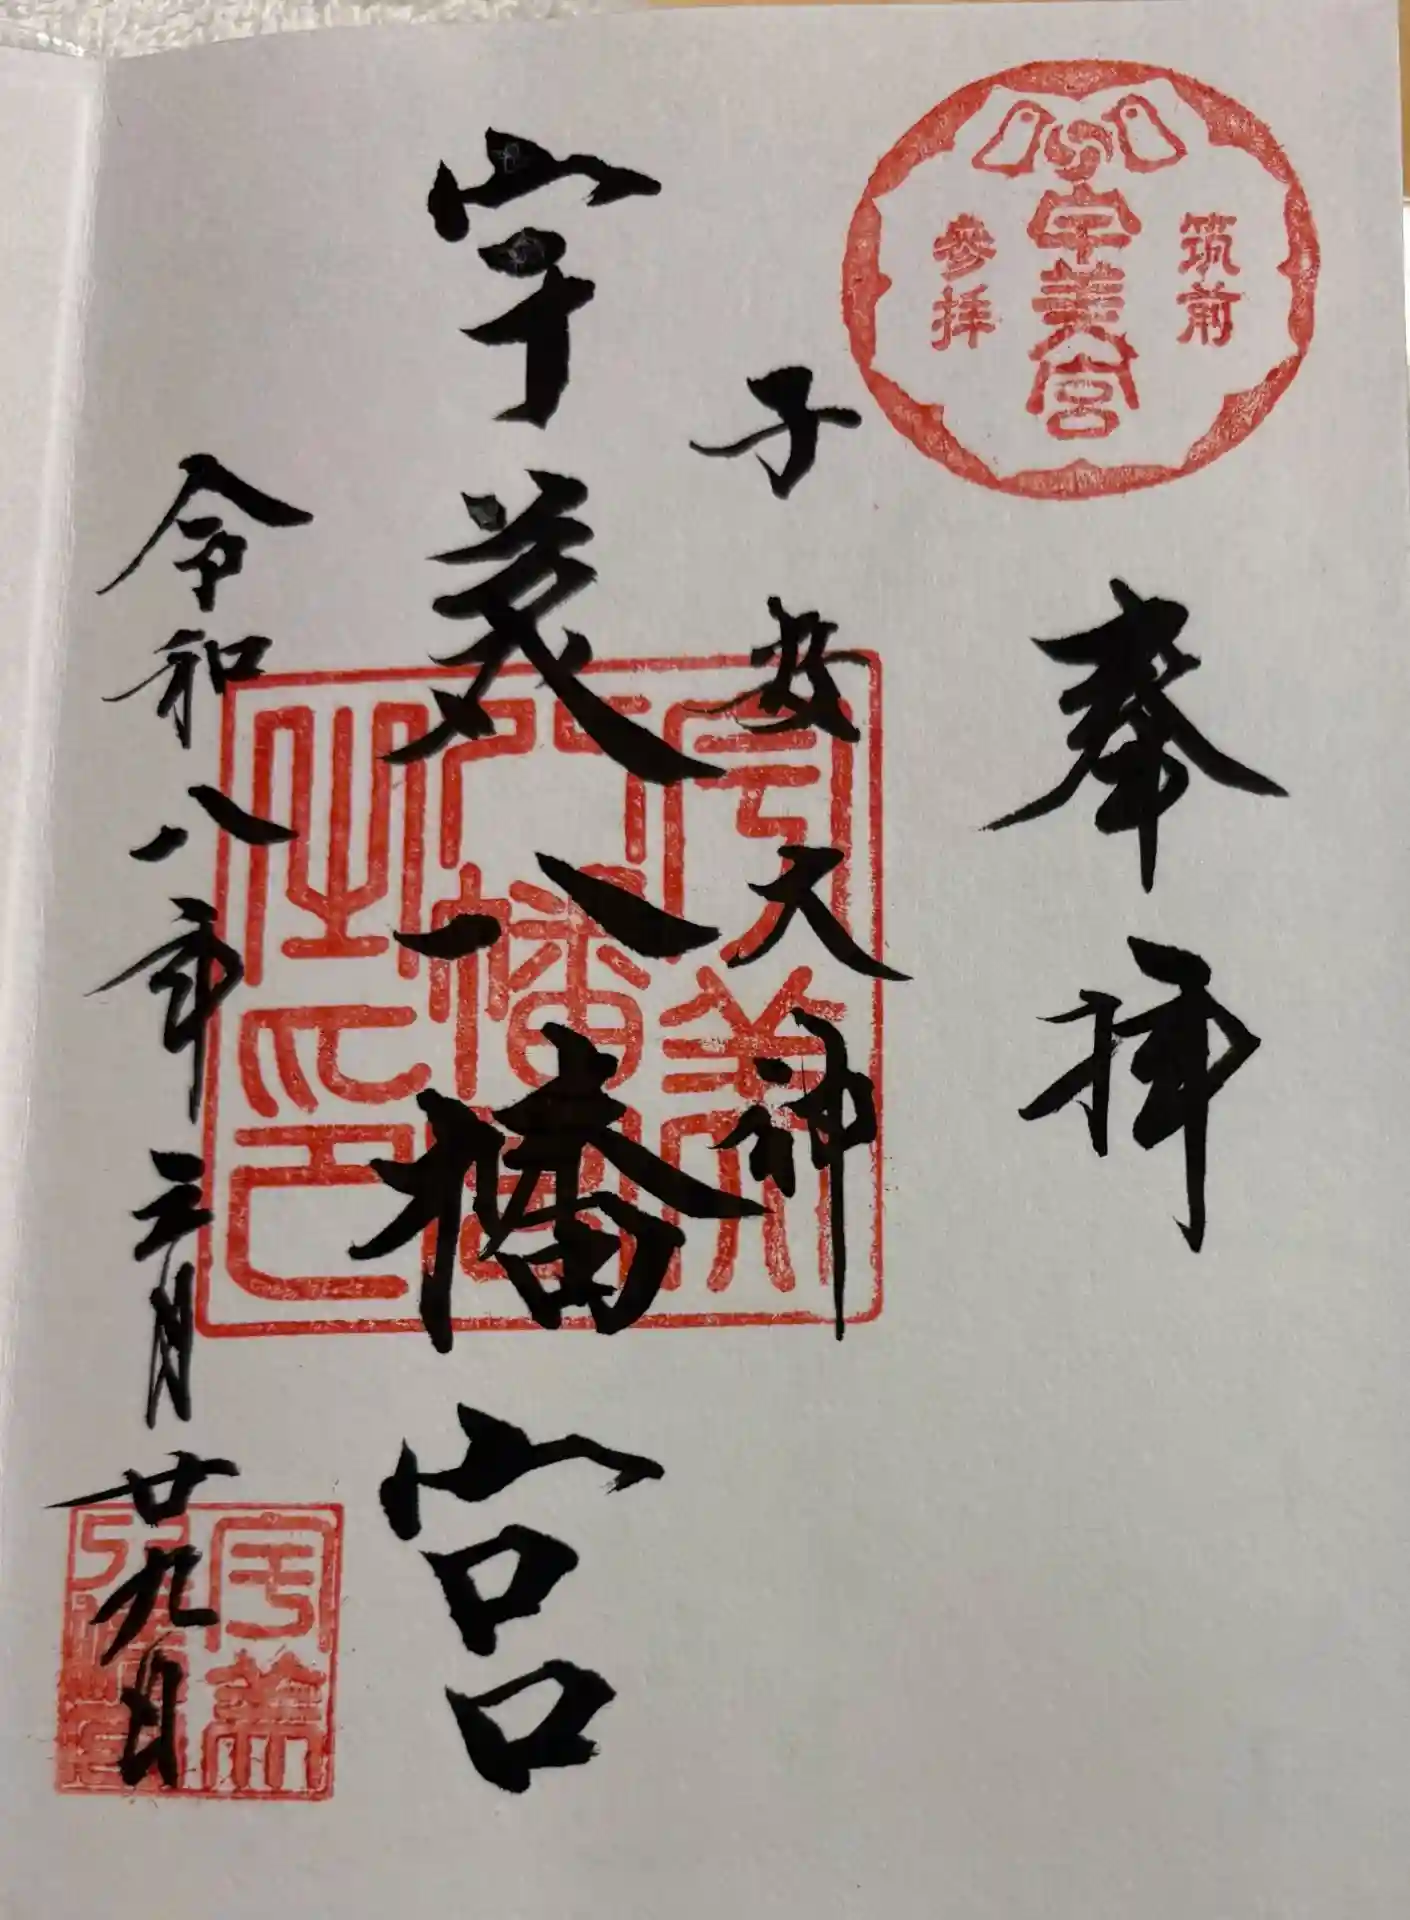 筑前
宇美宮
参拝
奉拝
子安大神
宇美八幡宮
令和八年三月廿九日
宇美
八幡宮
之印
宇美
八幡宮